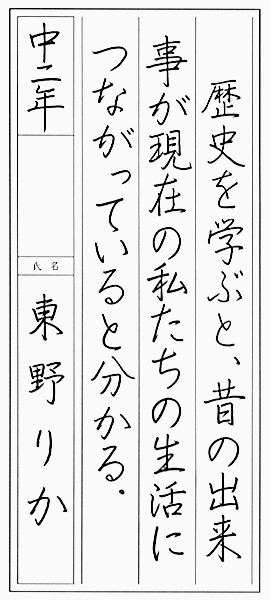 歴史を学ぶと、昔の出来
事が現在の私たちの生活に
つながっていると分かる.
中二年
氏名
東野りか